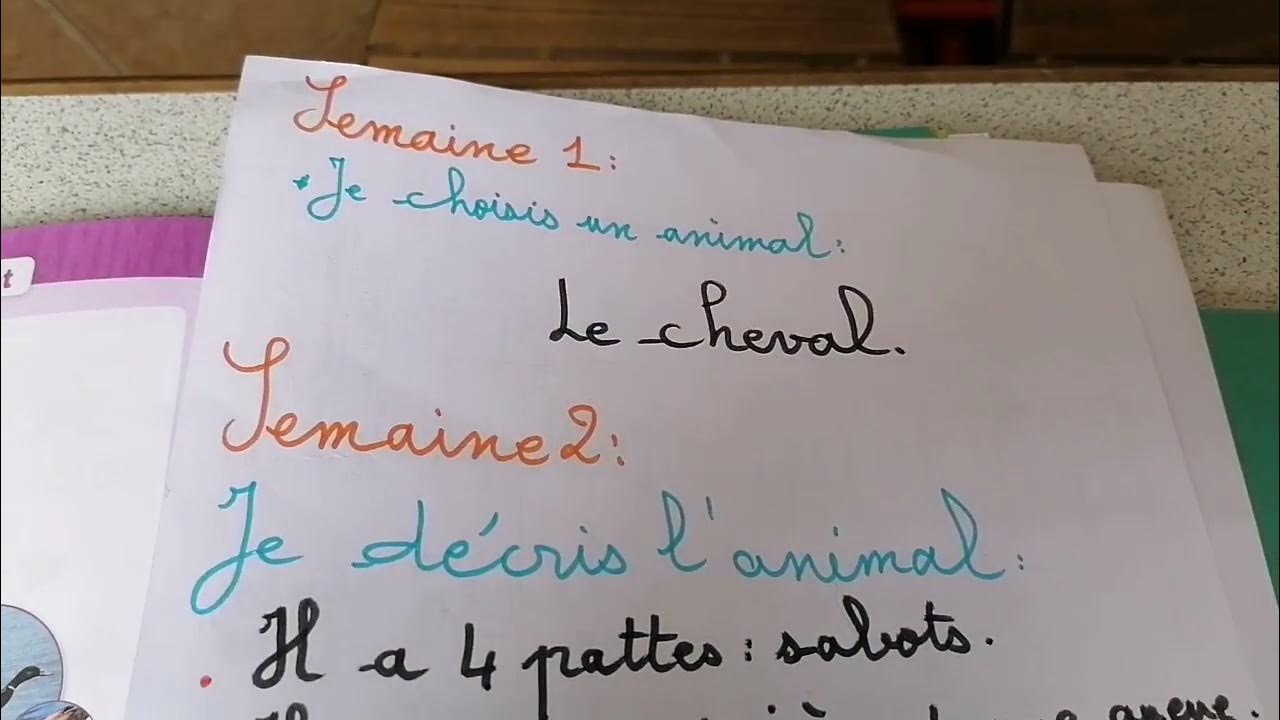 Semaine 1:
• Je choisis un animal:
Le cheval.
Semaine 2:
Je décris l'animal:
• Il a 4 pattes: sabots.
t